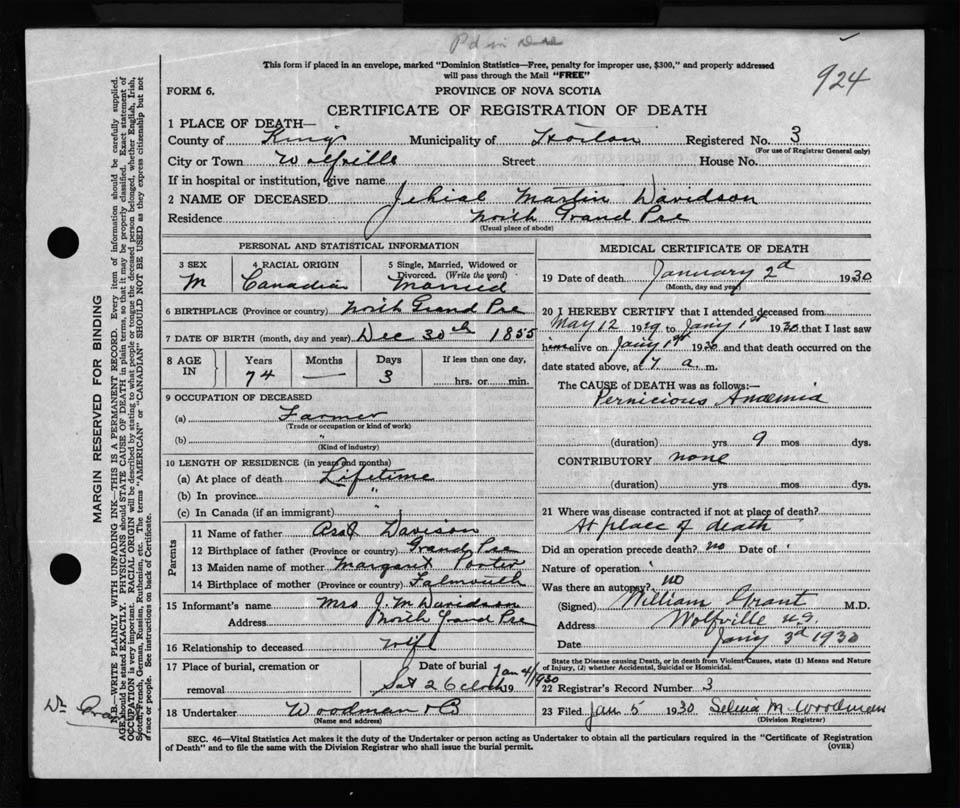 This form if placed in an envelope, marked "Dominion Statistics—Free, penalty for improper use, $300," and properly addressed
will pass through the Mail "FREE"
924
FORM 6.
PROVINCE OF NOVA SCOTIA
CERTIFICATE OF REGISTRATION OF DEATH
1 PLACE OF DEATH—
County of Kings Municipality of Horton Registered No. 3
(For use of Registrar General only)
City or Town Wolfville Street House No.
If in hospital or institution, give name
2 NAME OF DECEASED Jehial Martin Davidson
Residence North Grand Pre
(Usual place of abode)
PERSONAL AND STATISTICAL INFORMATION
3 SEX
M
4 RACIAL ORIGIN
Canadian
5 Single, Married, Widowed or
Divorced. (Write the word)
Married
6 BIRTHPLACE (Province or country) North Grand Pre
7 DATE OF BIRTH (month, day and year) Dec 30th 1855
8 AGE
IN
Years
74
Months
—
Days
3
If less than one day,
hrs. or min.
9 OCCUPATION OF DECEASED
(a) Farmer
(Trade or occupation or kind of work)
(b) "
(Kind of industry)
10 LENGTH OF RESIDENCE (in years and months)
(a) At place of death Lifetime
(b) In province "
(c) In Canada (if an immigrant) "
Parents
11 Name of father Davison
12 Birthplace of father (Province or country) Grand Pre
13 Maiden name of mother Margaret Porter
14 Birthplace of mother (Province or Country) Falmouth
15 Informant's name Mrs J. M Davidson
Address North Grand Pre
16 Relationship to deceased Wife
17 Place of burial, cremation or
removal
Date of burial Jan 4/1930
19
18 Undertaker Woodman
(Name and address)
MEDICAL CERTIFICATE OF DEATH
19 Date of death January 2d 1930
(Month, day and year)
20 I HEREBY CERTIFY that I attended deceased from
May 12 1929 to Jan'y 1st 1930 that I last saw
him alive on Jan'y 1st 1930 and that death occurred on the
date stated above, at 7 a. m.
The CAUSE of DEATH was as follows:—
Pernicious Anæmia
(duration) yrs 9 mos dys.
CONTRIBUTORY none
(duration) yrs mos dys.
21 Where was disease contracted if not at place of death?
At place of death
Did an operation precede death? no Date of
Nature of operation
Was there an autopsy? no
(Signed) William Grant M.D.
Address Wolfville N.S.
Date Jan'y 3d 1930
State the Disease causing Death, or in death from Violent Causes, state (1) Means and Nature
of Injury, (2) whether Accidental, Suicidal or Homicidal.
22 Registrar's Record Number 3
23 Filed Jan 5 1930 Selina M. Woodman
(Division Registrar)
SEC. 46—Vital Statistics Act makes it the duty of the Undertaker or person acting as Undertaker to obtain all the particulars required in the "Certificate of Registration
of Death" and to file the same with the Division Registrar who shall issue the burial permit.
(OVER)
MARGIN RESERVED FOR BINDING
N.B.—WRITE PLAINLY WITH UNFADING INK—THIS IS A PERMANENT RECORD. Every item of information should be carefully supplied.
AGE should be stated EXACTLY. PHYSICIANS should STATE CAUSE OF DEATH in plain terms, so that it may be properly classified. Exact statement of
OCCUPATION is very important. RACIAL ORIGIN will be described by stating to what people or tongue the deceased person belonged, whether English, Irish,
Scotch, French, German, Russian, Ruthenian, etc. The terms "AMERICAN" or "CANADIAN" SHOULD NOT BE USED as they express citizenship but not
a race or people. See instructions on back of Certificate.